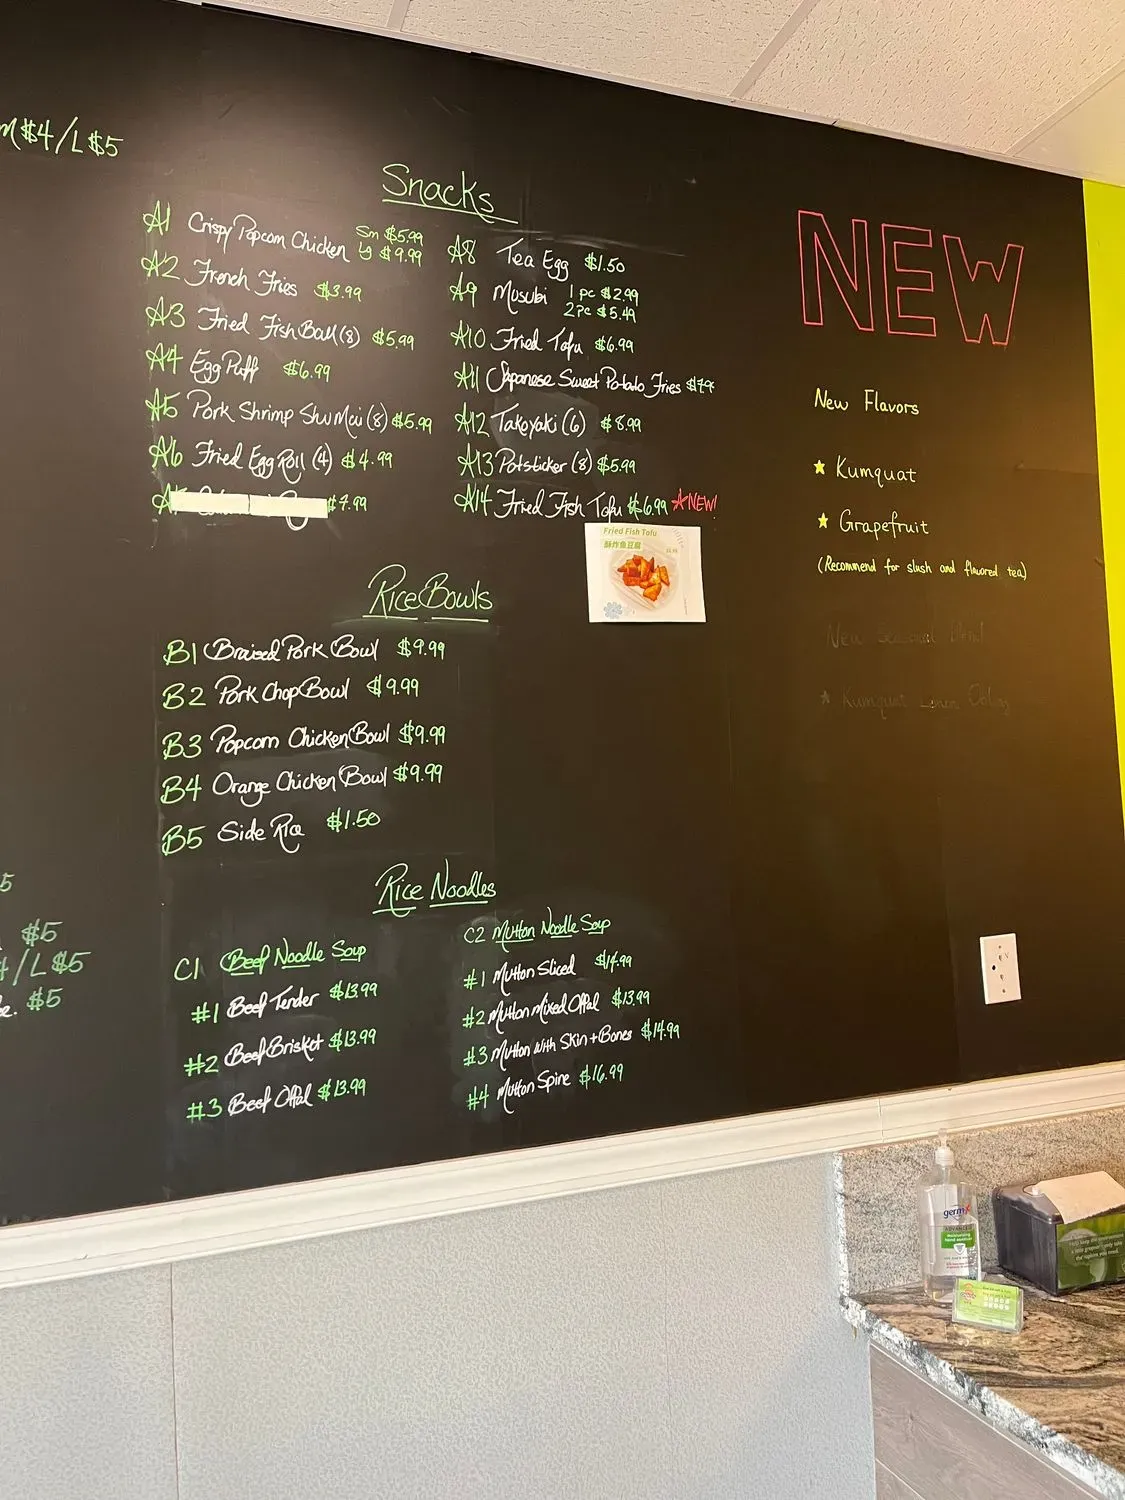 M $4/L $5
Snacks
A1 Crispy Popcorn Chicken Sm $5.99
Lg $9.99
A2 French Fries $3.99
A3 Fried Fish Ball (8) $5.99
A4 Egg Puff $6.99
A5 Pork Shrimp Shu Mai (8) $5.99
A6 Fried Egg Roll (4) $4.99
$7.99
A8 Tea Egg $1.50
A9 Musubi 1 pc $2.99
2 Pc $5.49
A10 Fried Tofu $6.99
A11 Japanese Sweet Potato Fries
A12 Takoyaki (6) $8.99
A13 Potsticker (8) $5.99
A14 Fried Fish Tofu $6.99 ☆NEW!
Fried Fish Tofu
酥炸魚豆腐
$6.99
Rice Bowls
B1 Braised Pork Bowl $9.99
B2 Pork Chop Bowl $9.99
B3 Popcorn Chicken Bowl $9.99
B4 Orange Chicken Bowl $9.99
B5 Side Rice $1.50
Rice Noodles
C1 Beef Noodle Soup
#1 Beef Tender $13.99
#2 Beef Brisket $13.99
#3 Beef Offal $13.99
C2 Mutton Noodle Soup
#1 Mutton Sliced $14.99
#2 Mutton Mixed Offal $13.99
#3 Mutton with Skin + Bones $14.99
#4 Mutton Spine $16.99
NEW
New Flavors
★ Kumquat
★ Grapefruit
(Recommend for slush and flavored tea)
New Seasonal Blend
★ Kumquat Lemon Oolong
5
$5
/L $5
e. $5
germ-x
ADVANCED
moisturizing
hand sanitizer